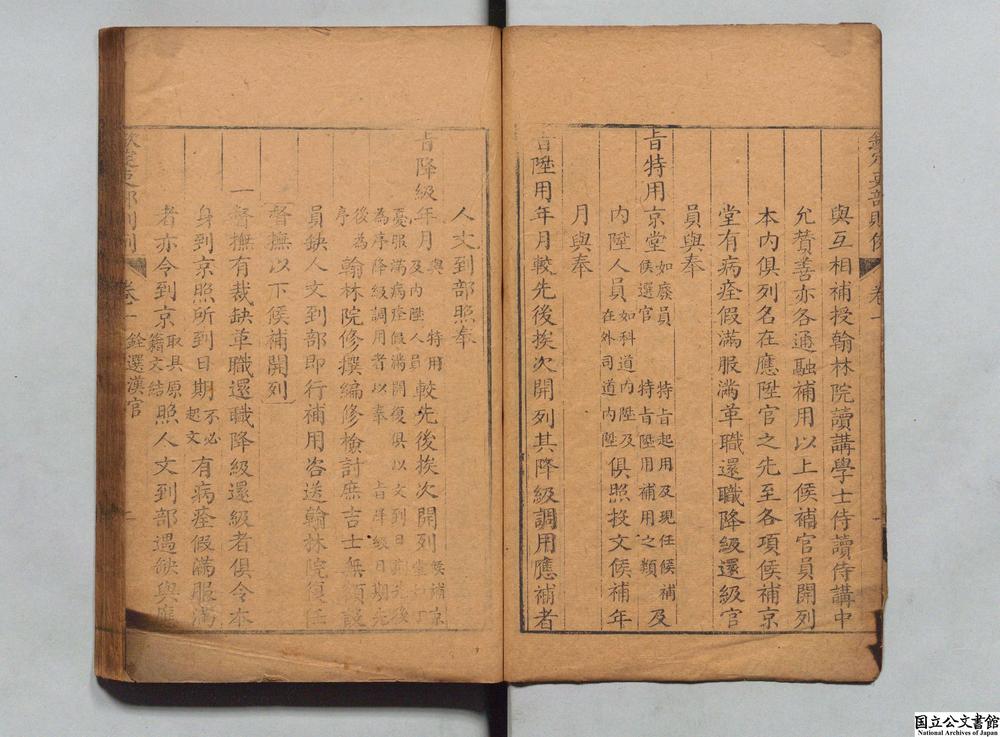 欽定吏部則例 卷一
與互相補授翰林院讀講學士侍讀侍講中
允贊善亦各通融補用以上候補官員開列
本內俱列名在應陞官之先至各項候補京
堂有病痊假滿服滿革職還職降級還級官
員與奉
旨特用京堂如廢員候選官特旨起用及現任候補特旨陞用補用之類及
內陞人員如科道內陞及在外司道內陞俱照投文候補年
月與奉
旨陞用年月較先後挨次開列其降級調用應補者
人文到部照奉
旨降級年月與特用及內陞人員較先後挨次開列
憂服滿病痊假滿開復俱以文到日期先後為序降級調用者以奉旨降級日期先後為序
翰林院修撰編修檢討庶吉士無項設
員缺人文到部即行補用咨送翰林院復任
督撫以下候補開列
一督撫有裁缺革職還職降級還級者俱令本
身到京照所到日期不必起文有病痊假滿服滿
者亦令到京取具原籍文結照人文到部遇缺與應
欽定吏部則例 卷一 銓選漢官 一
国立公文書館
National Archives of Japan